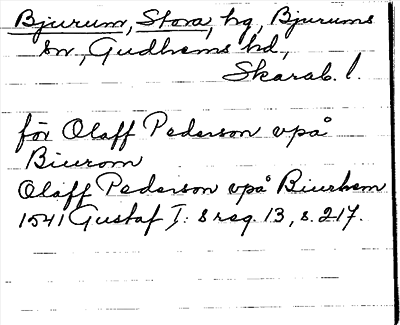 Bjurum, Stora, hg, Bjurums
sn, Gudhems hd,
Skarab. l.
för Olaff Pederson vpå
Biurom
Olaff Pederson vpå Biurhem
1541 Gustaf I:s reg. 13, s. 217.